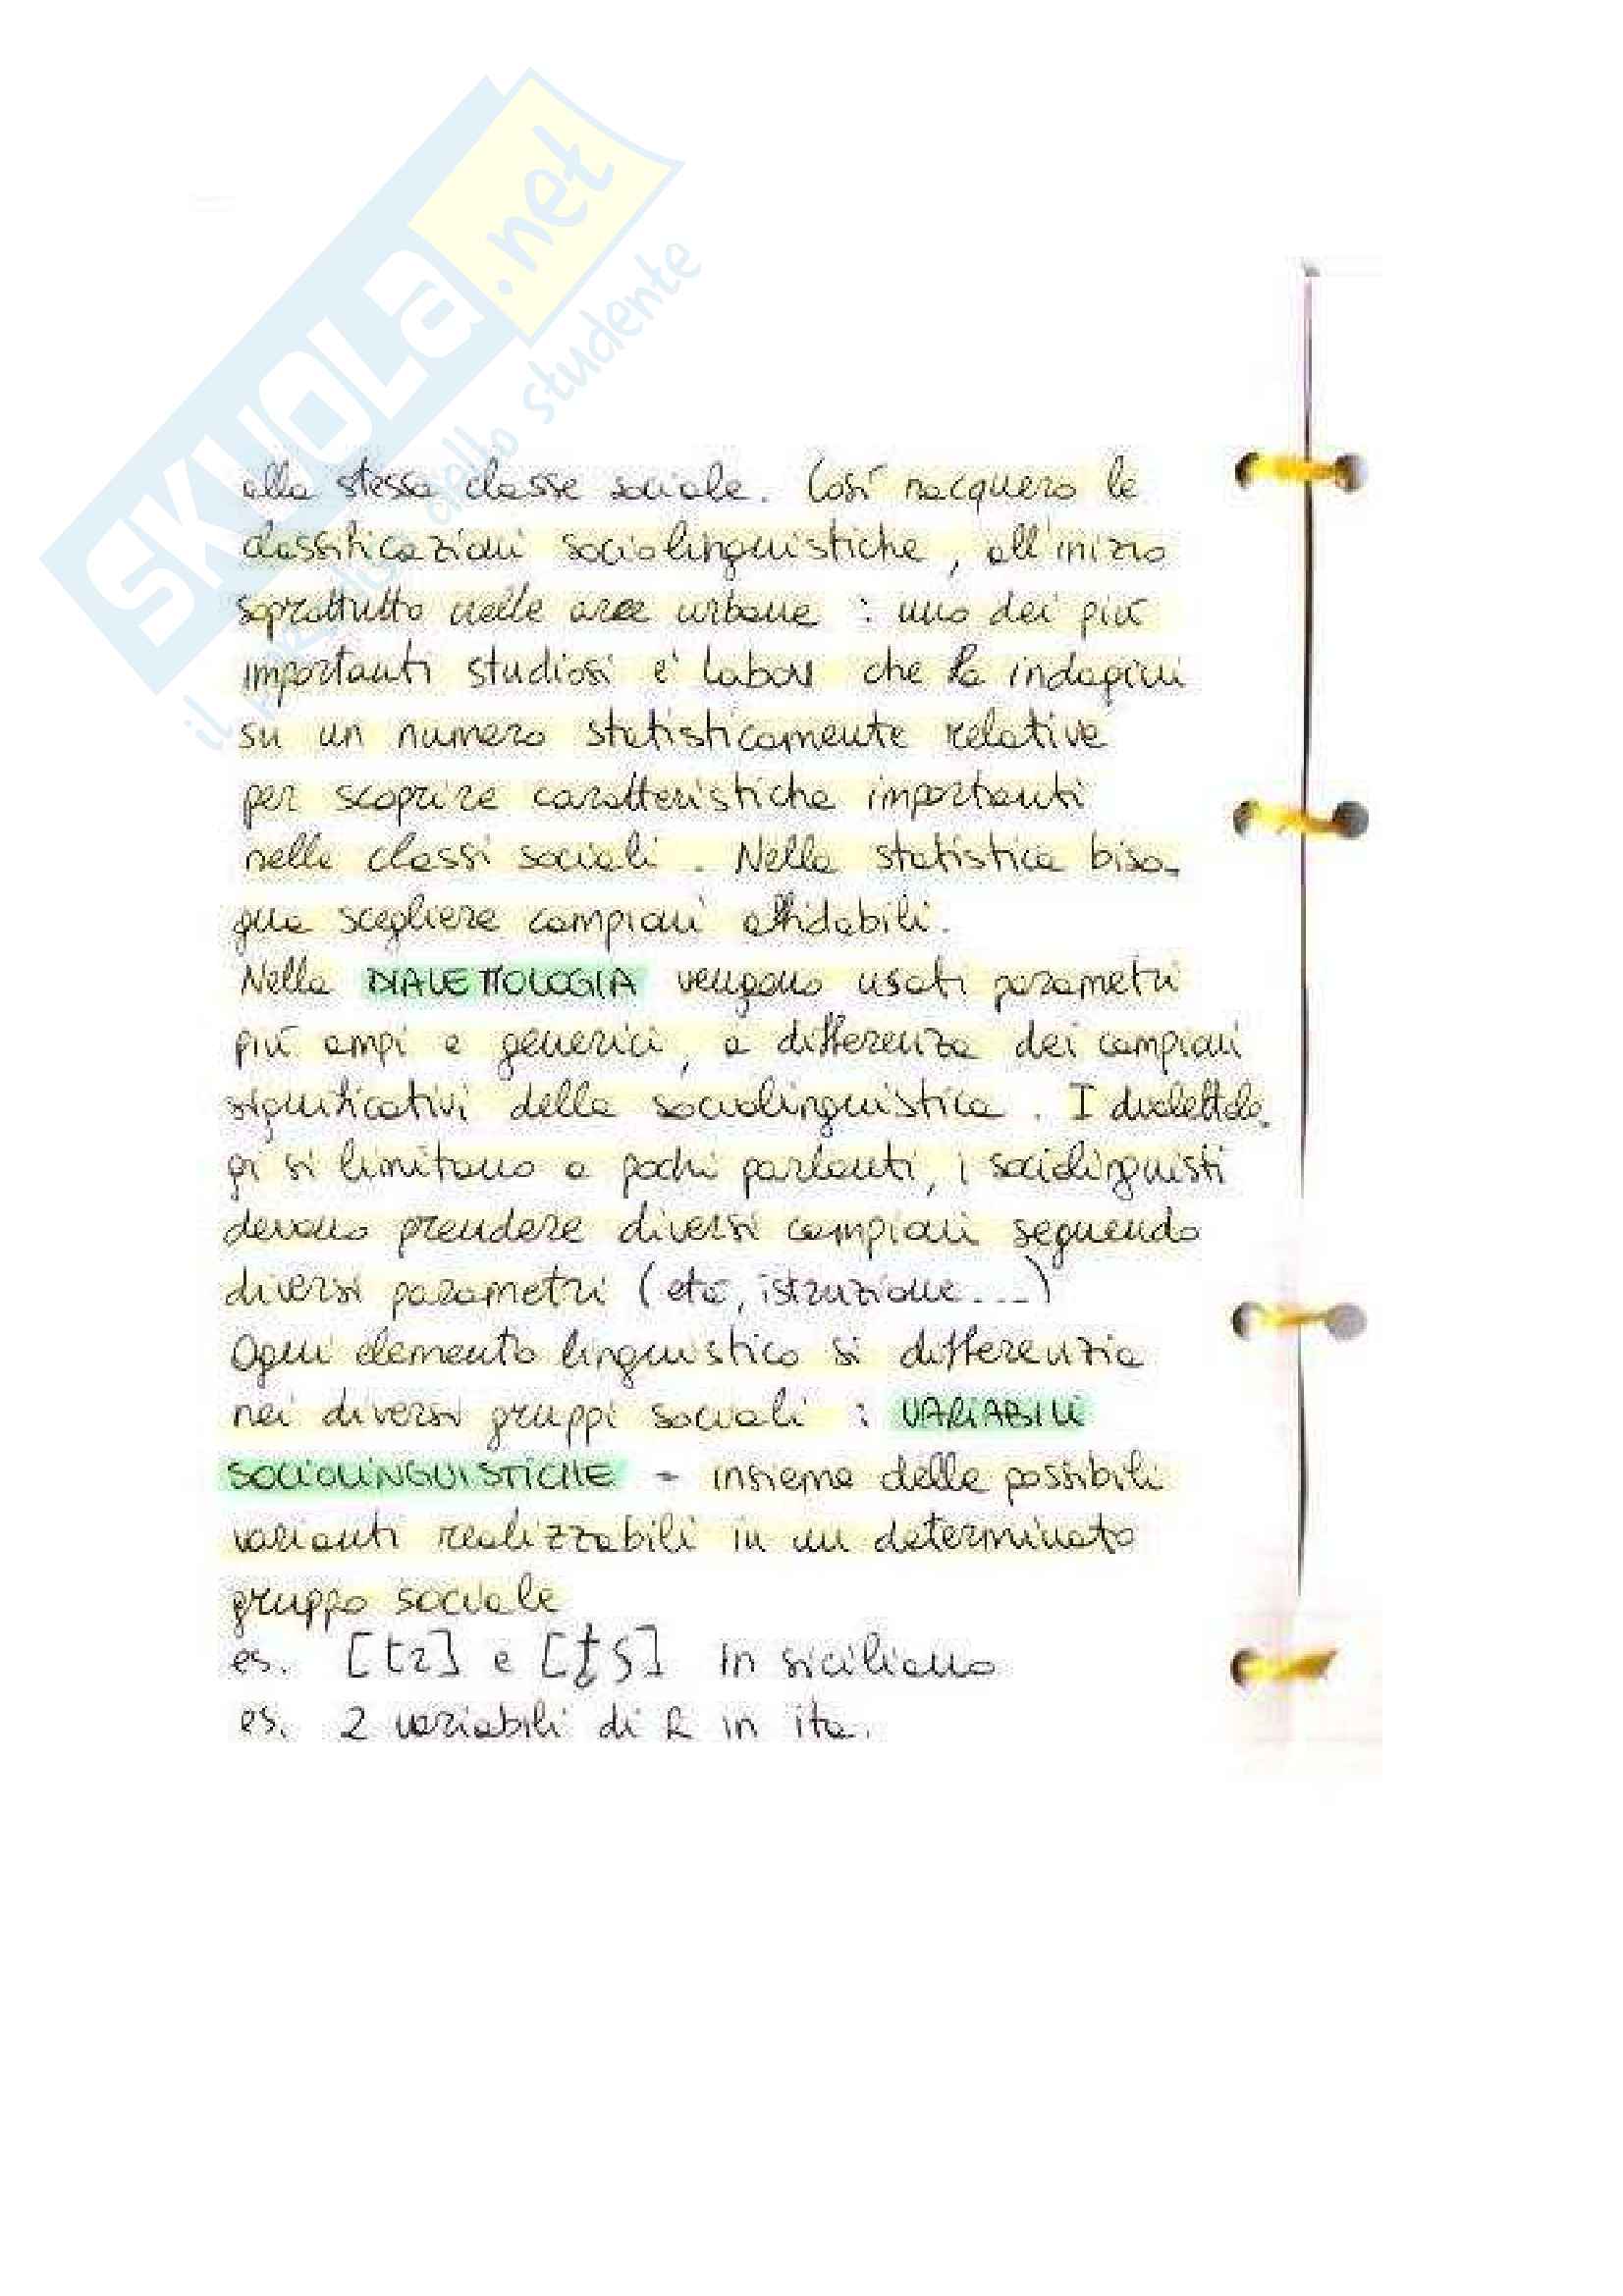 SKUOLa.net
il dello studente
alla stessa classe sociale. Così nacquero le
classificazioni sociolinguistiche, all'inizio
soprattutto nelle aree urbane : uno dei più
importanti studiosi è Labov che fa indagini
su un numero statisticamente relative
per scoprire caratteristiche importanti
nelle classi sociali. Nella statistica biso-
gna scegliere campioni affidabili.
Nella DIALETTOLOGIA vengono usati parametri
più ampi e generici, a differenza dei campioni
significativi della sociolinguistica. I dialettolo-
gi si limitano a pochi parlanti, i sociolinguisti
devono prendere diversi campioni seguendo
diversi parametri (età, istruzione...)
Ogni elemento linguistico si differenzia
nei diversi gruppi sociali : VARIABILI
SOCIOLINGUISTICHE = insieme delle possibili
varianti realizzabili in un determinato
gruppo sociale
es. e in siciliano
es. 2 variabili di R in ita.